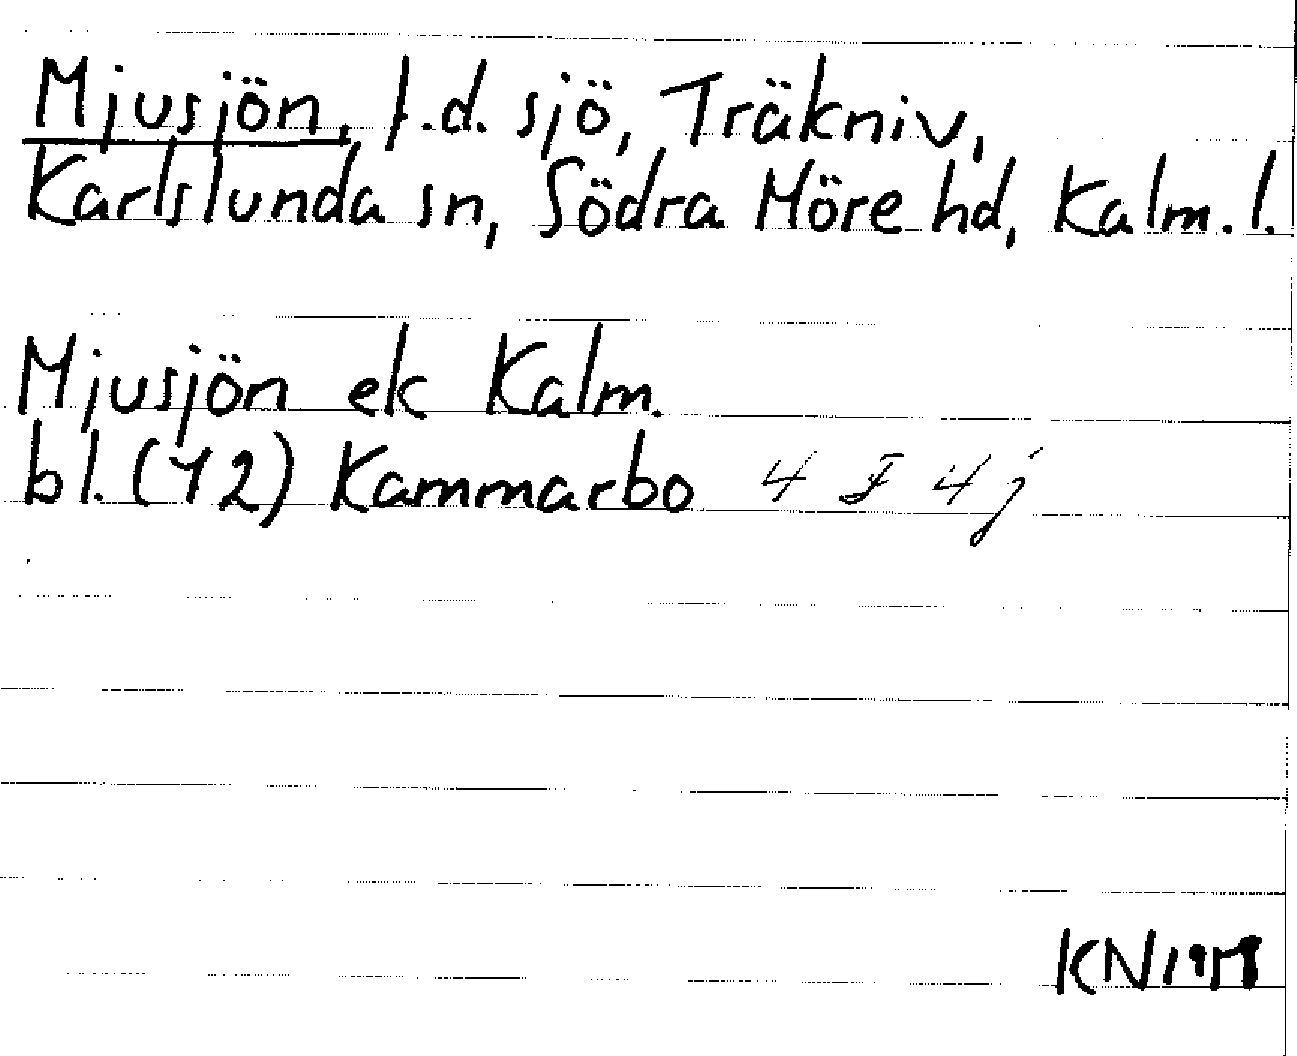 Mjusjön, f.d. sjö, Träkniv,
Karlslunda sn, Södra Möre hd, Kalm. l.
Mjusjön ek Kalm.
bl. (12) Kammarbo 4 F 4 j